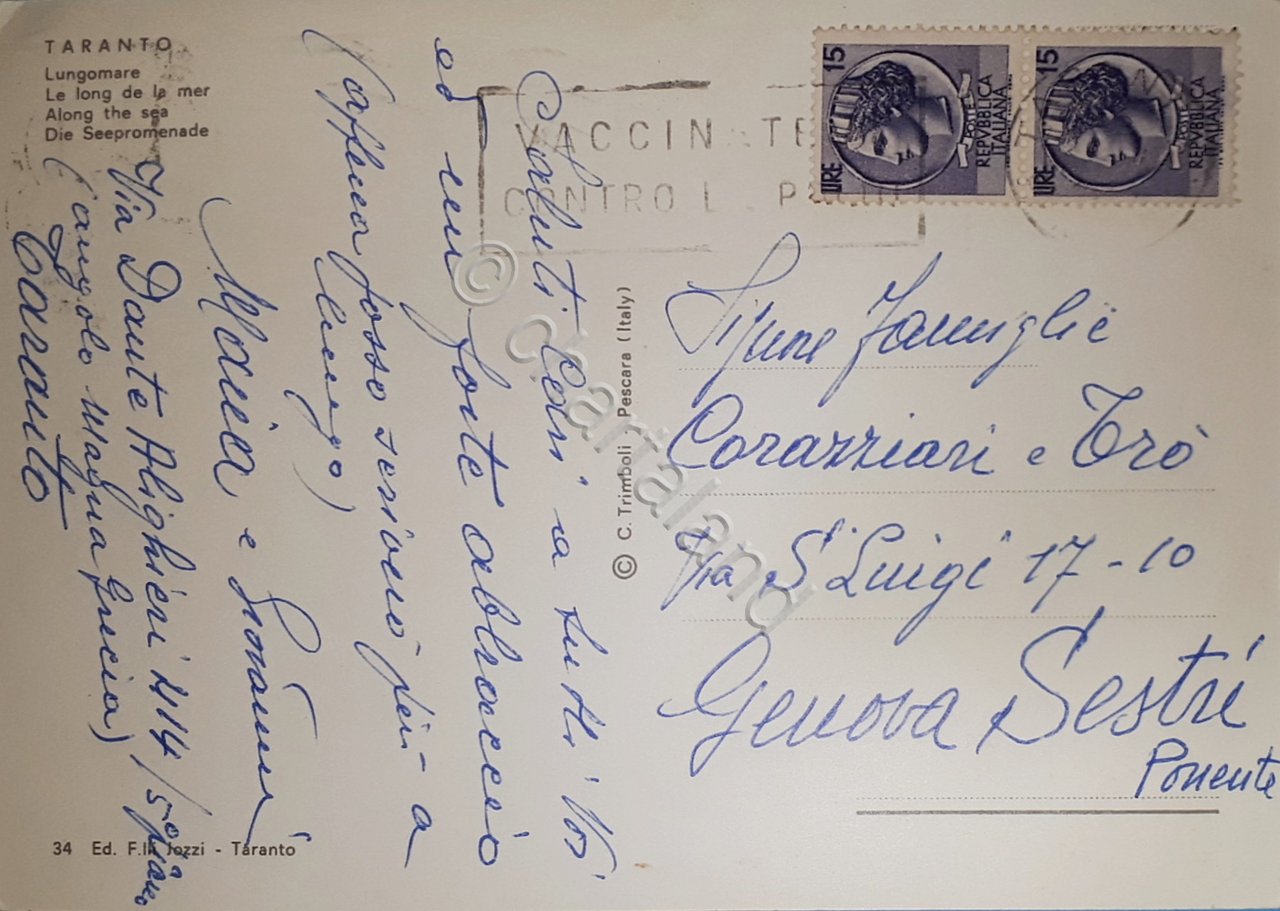 TARANTO
Lungomare
Le long de la mer
Along the sea
Die Seepromenade
VACCIN TE
CONTRO L P
LIRE 15
POSTE
REPVBBLICA
ITALIANA
LIRE 15
POSTE
REPVBBLICA
ITALIANA
Saluti cari a tutti Voi
ed un forte abbraccio
(appena posso scriverò più a
lungo)
Maria e Giovanni
Via Dante Alighieri 214/5° piano
(angolo Magna Grecia)
Taranto
© C. Trimboli - Pescara (Italy)
© cartaland
Famiglie
Corazziari e Trò
Via S. Luigi 17-10
Genova Sestri
Ponente
34 Ed. F.lli Jozzi - Taranto